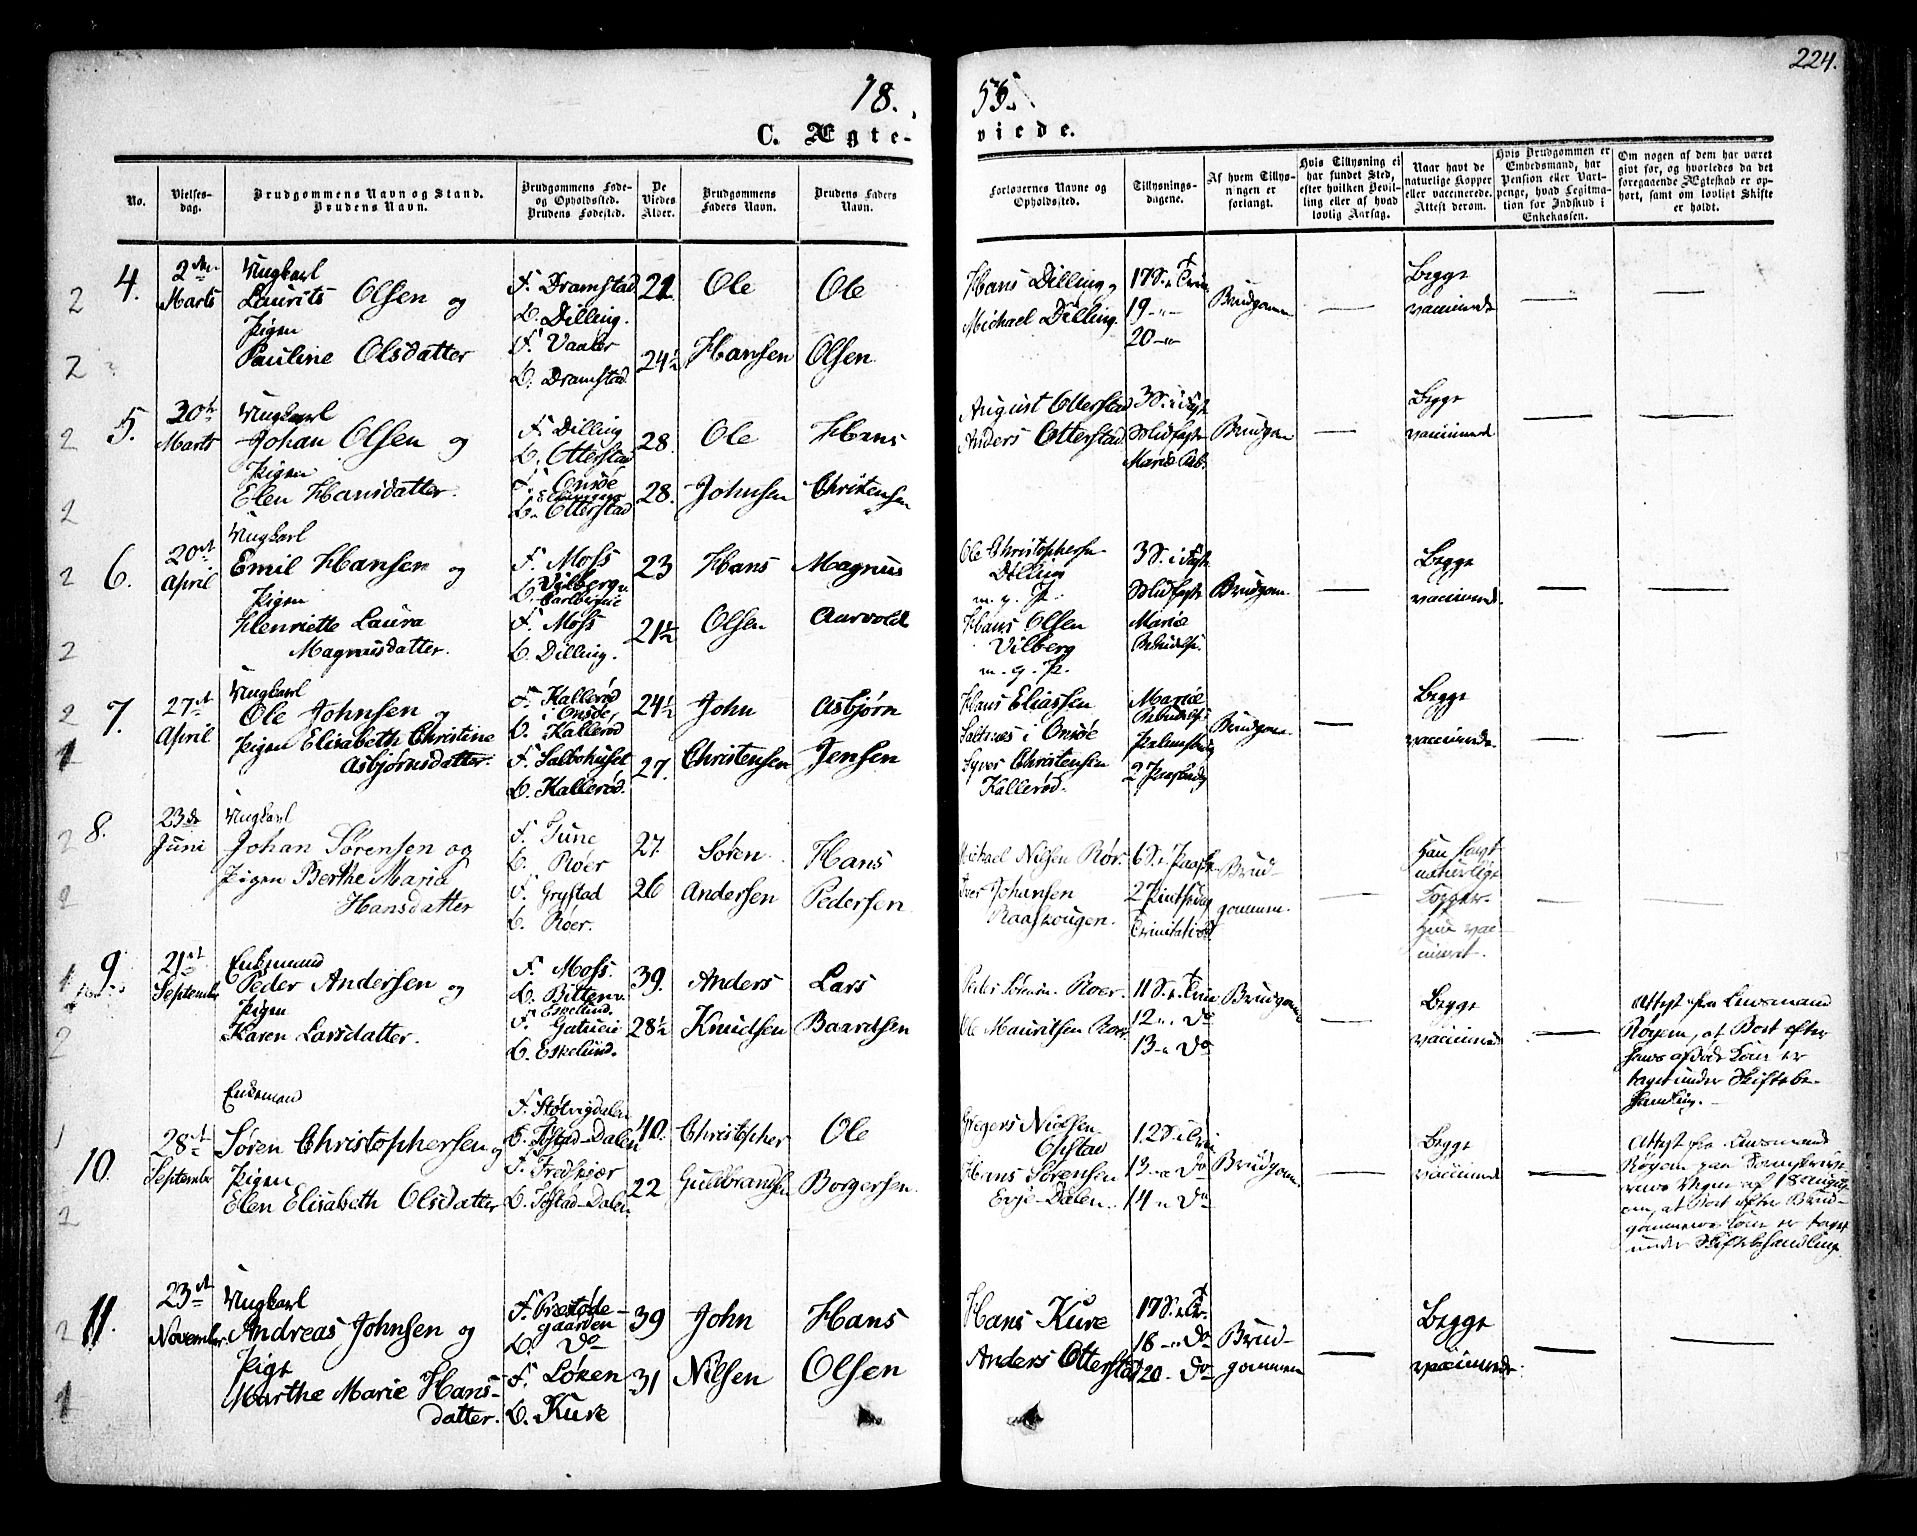 224.
18. 55.
C. Ægteviede.
No.
Vielsesdag.
Brudgommens Navn og Stand. Brudens Navn.
Brudgommens Føde- og Opholdssted. Brudens Fødested.
De Viedes Alder.
Brudgommens Faders Navn.
Brudens Faders Navn.
Forlovernes Navne og Opholdssted.
Tillysningsdagene.
Af hvem Tillysningen er forlangt.
Hvis Tillysning ei har fundet Sted, efter hvilken Bevilling eller af hvad lovlig Aarsag.
Naar havt de naturlige Kopper eller vaccinerede. Attest derom.
Hvis Brudgommen er Embedsmand, har Pension eller Vartpenge, hvad Legitmation for Indskud i Enkekassen.
Om nogen af dem har været givt før, og hvorledes da det foregaaende Ægteskab er ophørt, samt om lovligt Skifte er holdt.
4. 2den Marts
Ungkarl Laurits Olsen og
Pigen Pauline Olsdatter
F. Dramstad
B. Dilling.
F. Vaaler
B. Dramstad
21 24½
Ole Hansen
Ole Olsen
Hans Dilling,
Michael Dilling.
17 S. e. Trin
19 -"-
20 -"-
Brudgom
Begge vaccinerede
5. 30te Marts
Ungkarl Johan Olsen og
Pigen Elen Hansdatter.
F. Dilling
B. Otterstad
F. Onsøe
B. Otterstad
28. 28.
Ole Johnsen
Hans Christensen
August Otterstad
Anders Otterstad
3 S. i Fast
Midfaste
Mariæ Beb.
Brudgom
Begge vaccinerede
6. 20de April
Ungkarl Emil Hansen og
Pigen Henriette Laura
Magnusdatter.
F. Moss
B. Vilberg
F. Moss
B. Dilling.
23 21½
Hans Olsen
Magnus Aarvold
Ole Christophersen
Dilling
m. q. p.
Hans Olsen
Vilberg
m. q. p.
3 S. i Faste
Midfaste
Mariæ Bebudelse.
Brudgom.
Begge vaccinered.
7. 27de April
Ungkarl Ole Johnsen og
Pigen Elisabeth Christine
Asbjørnsdatter.
F. Kallerød
i Onsøe,
B. Kallerød
F. Saltbohuset
B. Kallerød.
24½ 27.
John Christensen
Asbjørn Jensen
Hans Eliassen
Saltnes i Onsøe
Syver Christensen
Kallerød.
Mariæ Bebudelse
Palmesøndag
2 Paaskedag
Brudgom.
Begge vaccinerede.
8. 23de Juni
Ungkarl Johan Sørensen og
Pigen Berthe Maria
Hansdatter
F. Tune
B. Roer
F. Grystad
B. Roer.
27. 26
Søren Andersen
Hans Pedersen
Michael Nilsen Rør.
Iver Johansen
Raaskougen.
6 S. e. Paaske
2 Pintsedag
Trinitatis
Brudgommen.
Han havt naturlige Kopper.
Hun vaccineret.
9. 21de September
Enkemand Peder Andersen og
Pigen Karen Larsdatter.
F. Moss.
B. Bitten u. Eskelund.
F. Gatueie
B. Eskelund.
39. 28½
Anders Knudsen
Lars Baardsen
Peder Sørensen Roer.
Ole Mauritsen Roer
11 S. e. Trin
12 -"- Do
13 -"- Do
Brudgom
Begge vaccinerede
Attest fra Lensmand
Røyem, at Boet efter
hans afdøde Kone er
taget under Skiftebehandling.
10. 28de September
Enkemand
Søren Christophersen og
Pigen
Elen Elisabeth Olsdatter
F. Støtvigdalen
B. Tofstad-Dalen
F. Fredskjær
B. Tofstad-Dalen
40. 22
Christopher Gulbrandsen
Ole Borgersen.
Nielsen
Opstad
Hans Sørensen
Evje-Dalen.
12 S. e. Trin
13 -"- Do
14 -"- Do
Brudgom.
Begge vaccinerede
Attest fra Lensmand
Røyem paa
Vegne af 18 August
om, at Boet efter Brudgommens Kone er taget
under Skiftebehandling.
11. 23de November.
Ungkarl Andreas Johnsen og
Pige Marthe Marie Hansdatter.
F. Præstødegaarden
B. Do
F. Løken
B. Kure
39 31
John Nilsen
Hans Olsen
Hans Kure
Anders Otterstad
17 S. e. Tr.
18 -"- Do
20 - Do
Brudgommen
Begge vaccinerede.